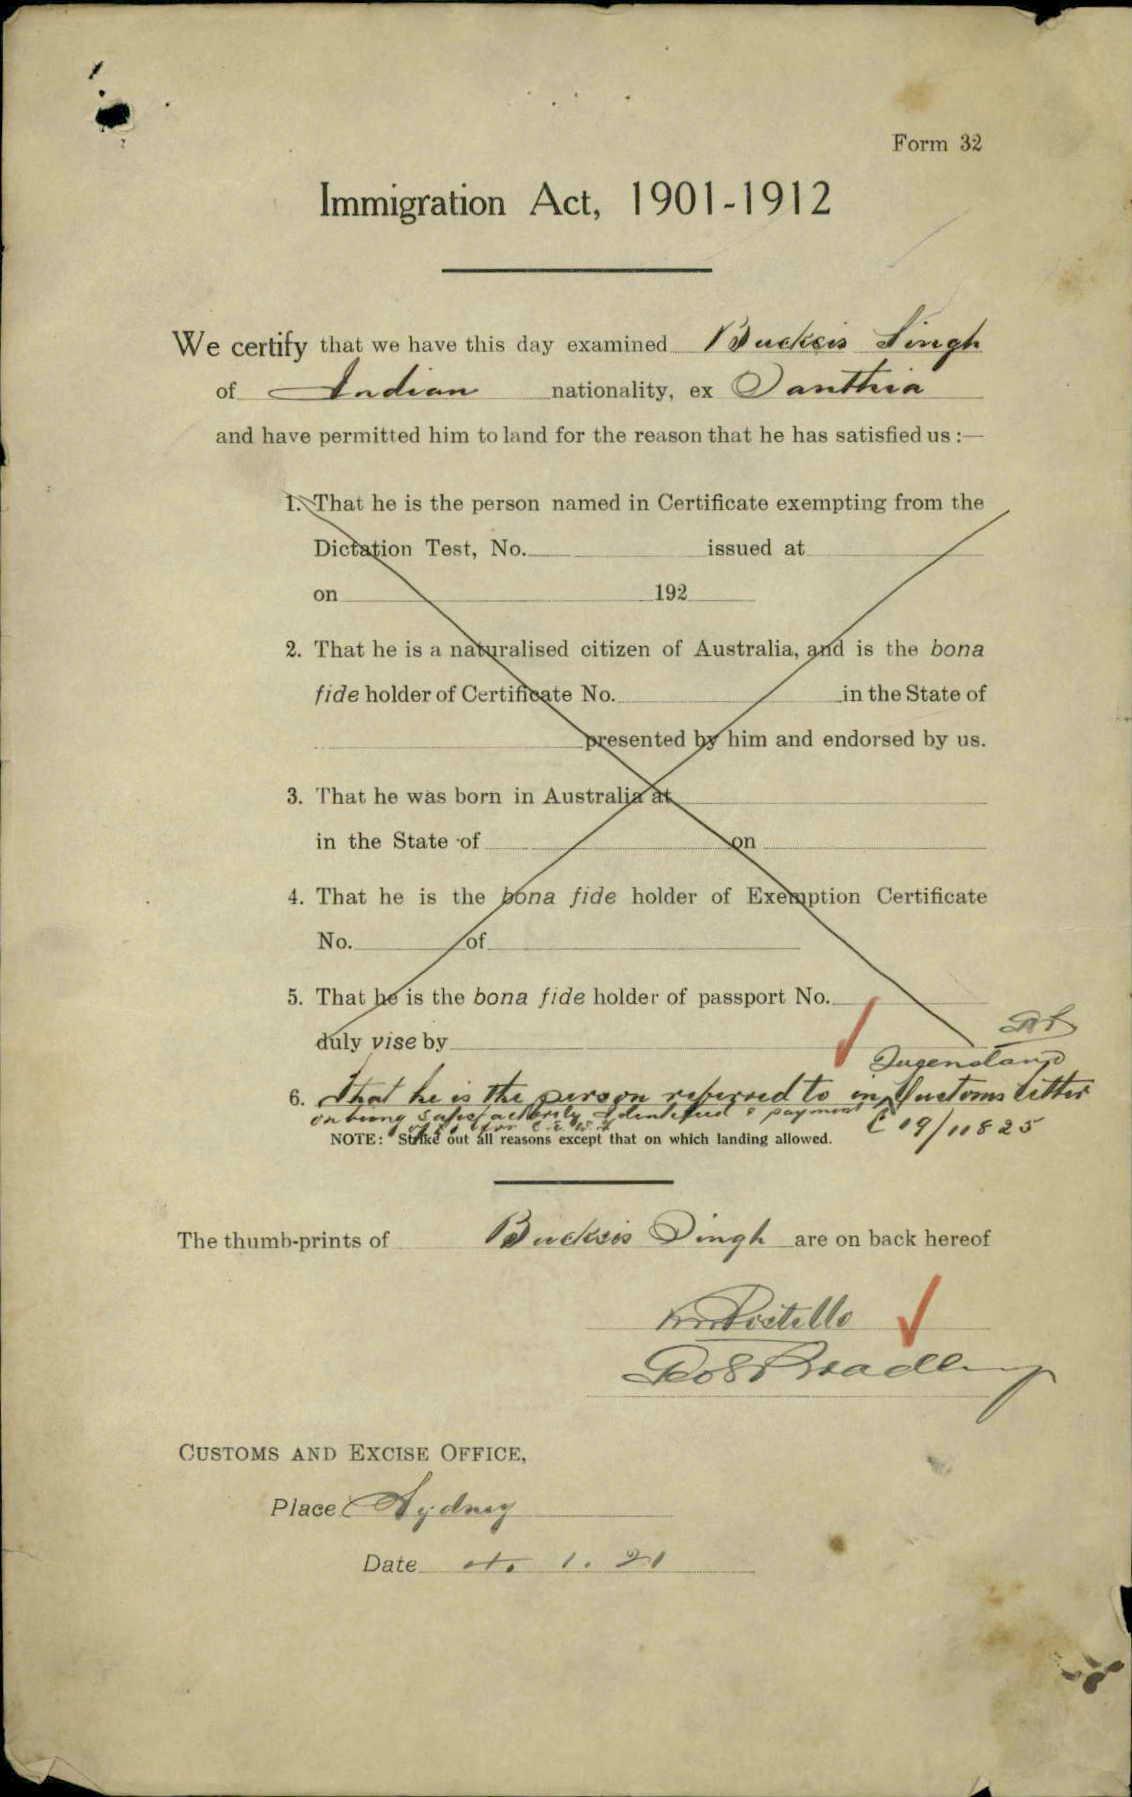 Form 32
Immigration Act, 1901-1912
We certify that we have this day examined Bucksis Singh
of Indian nationality, ex Janthia
and have permitted him to land for the reason that he has satisfied us :—
1. That he is the person named in Certificate exempting from the
Dictation Test, No. issued at
on 192
2. That he is a naturalised citizen of Australia, and is the bona
fide holder of Certificate No. in the State of
presented by him and endorsed by us.
3. That he was born in Australia at
in the State of on
4. That he is the bona fide holder of Exemption Certificate
No. of
5. That he is the bona fide holder of passport No.
duly vise by
Queensland
6. That he is the person referred to in Customs letter
on being satisfactorily identified & payment
C 19/11825
NOTE: Strike out all reasons except that on which landing allowed.
The thumb-prints of Bucksis Singh are on back hereof
Costello
Bradley
CUSTOMS AND EXCISE OFFICE,
Place Sydney
Date 4. 1. 21